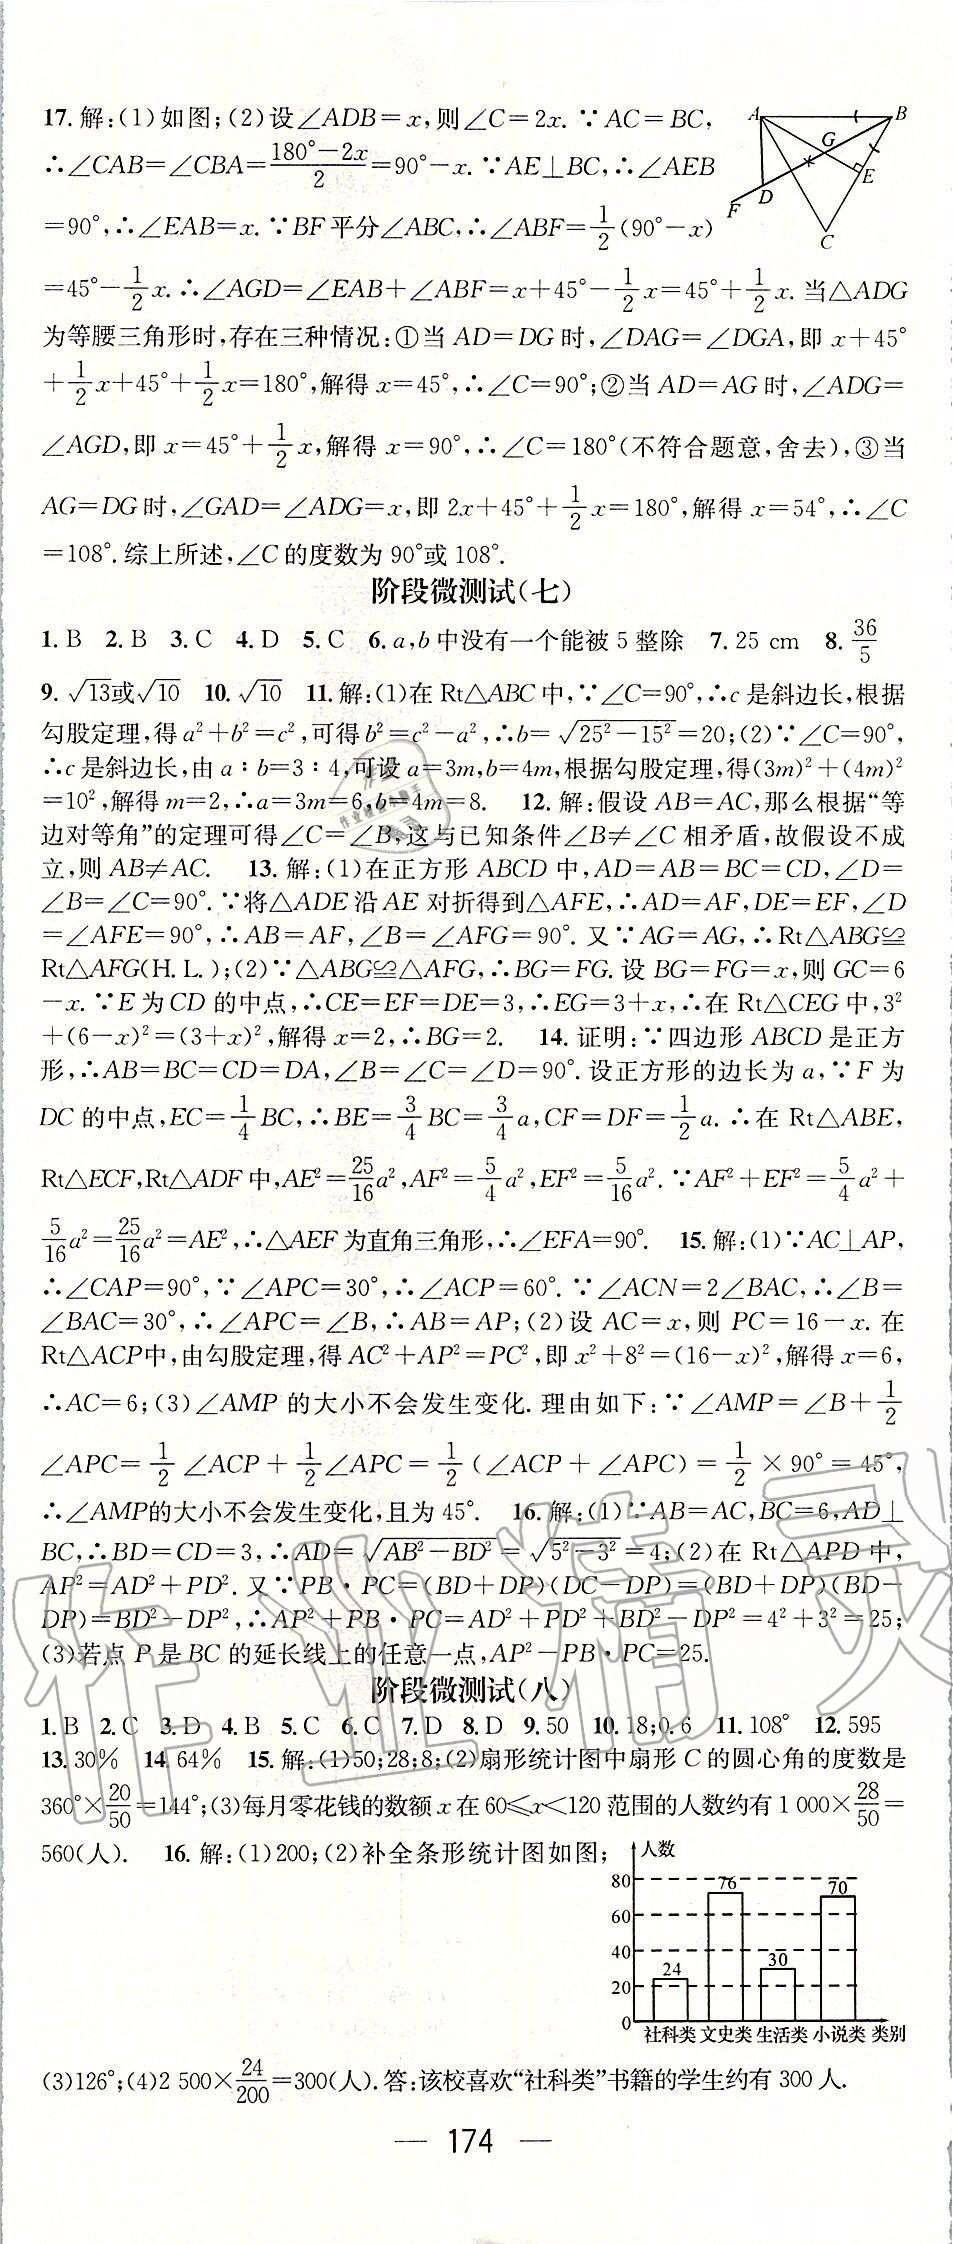 17.解:(1)如图;(2)设∠ADB=x,则∠C=2x.∵AC=BC,
∴∠CAB=∠CBA=(180°-2x)/2=90°-x.∵AE⊥BC,∴∠AEB
=90°,∴∠EAB=x.∵BF平分∠ABC,∴∠ABF=1/2(90°-x)
A B G E D F C
=45°-1/2x.∴∠AGD=∠EAB+∠ABF=x+45°-1/2x=45°+1/2x.当△ADG
为等腰三角形时,存在三种情况:①当AD=DG时,∠DAG=∠DGA,即x+45°
+1/2x+45°+1/2x=180°,解得x=45°,∴∠C=90°;②当AD=AG时,∠ADG=
∠AGD,即x=45°+1/2x,解得x=90°,∴∠C=180°(不符合题意,舍去),③当
AG=DG时,∠GAD=∠ADG=x,即2x+45°+1/2x=180°,解得x=54°,∴∠C
=108°.综上所述,∠C的度数为90°或108°.
阶段微测试(七)
1.B 2.B 3.C 4.D 5.C 6.a,b中没有一个能被5整除 7.25 cm 8.36/5
9.√13或√10 10.√10 11.解:(1)在Rt△ABC中,∵∠C=90°,∴c是斜边长,根据
勾股定理,得a²+b²=c²,可得b²=c²-a²,∴b=√(25²-15²)=20;(2)∵∠C=90°,
∴c是斜边长,由a∶b=3∶4,可设a=3m,b=4m,根据勾股定理,得(3m)²+(4m)²
=10²,解得m=2,∴a=3m=6,b=4m=8. 12.解:假设AB=AC,那么根据“等
边对等角”的定理可得∠C=∠B,这与已知条件∠B≠∠C相矛盾,故假设不成
立,则AB≠AC. 13.解:(1)在正方形ABCD中,AD=AB=BC=CD,∠D=
∠B=∠C=90°.∵将△ADE沿AE对折得到△AFE,∴AD=AF,DE=EF,∠D
=∠AFE=90°,∴AB=AF,∠B=∠AFG=90°.又∵AG=AG,∴Rt△ABG≌
Rt△AFG(H.L.);(2)∵△ABG≌△AFG,∴BG=FG.设BG=FG=x,则GC=6
-x.∵E为CD的中点,∴CE=EF=DE=3,∴EG=3+x,∴在Rt△CEG中,3²
+(6-x)²=(3+x)²,解得x=2,∴BG=2. 14.证明:∵四边形ABCD是正方
形,∴AB=BC=CD=DA,∠B=∠C=∠D=90°.设正方形的边长为a,∵F为
DC的中点,EC=1/4BC,∴BE=3/4BC=3/4a,CF=DF=1/2a.∴在Rt△ABE,
Rt△ECF,Rt△ADF中,AE²=25/16a²,AF²=5/4a²,EF²=5/16a².∵AF²+EF²=5/4a²+
5/16a²=25/16a²=AE²,∴△AEF为直角三角形,∴∠EFA=90°. 15.解:(1)∵AC⊥AP,
∴∠CAP=90°,∵∠APC=30°,∴∠ACP=60°.∵∠ACN=2∠BAC,∴∠B=
∠BAC=30°,∴∠APC=∠B,∴AB=AP;(2)设AC=x,则PC=16-x.在
Rt△ACP中,由勾股定理,得AC²+AP²=PC²,即x²+8²=(16-x)²,解得x=6,
∴AC=6;(3)∠AMP的大小不会发生变化.理由如下:∵∠AMP=∠B+1/2
∠APC=1/2∠ACP+1/2∠APC=1/2(∠ACP+∠APC)=1/2×90°=45°,
∴∠AMP的大小不会发生变化,且为45°. 16.解:(1)∵AB=AC,BC=6,AD⊥
BC,∴BD=CD=3,∴AD=√(AB²-BD²)=√(5²-3²)=4;(2)在Rt△APD中,
AP²=AD²+PD².又∵PB·PC=(BD+DP)(DC-DP)=(BD+DP)(BD-
DP)=BD²-DP²,∴AP²+PB·PC=AD²+PD²+BD²-DP²=4²+3²=25;
(3)若点P是BC的延长线上的任意一点,AP²-PB·PC=25.
阶段微测试(八)
1.B 2.C 3.D 4.B 5.C 6.C 7.D 8.D 9.50 10.18;0.6 11.108° 12.595
13.30% 14.64% 15.解:(1)50;28;8;(2)扇形统计图中扇形C的圆心角的度数是
360°×20/50=144°;(3)每月零花钱的数额x在60≤x<120范围的人数约有1 000×28/50=
560(人). 16.解:(1)200;(2)补全条形统计图如图;
人数
80 60 40 20 0
24 76 30 70
社科类 文史类 生活类 小说类 类别
(3)126°;(4)2 500×24/200=300(人).答:该校喜欢“社科类”书籍的学生约有300人.
— 174 —
作业精灵